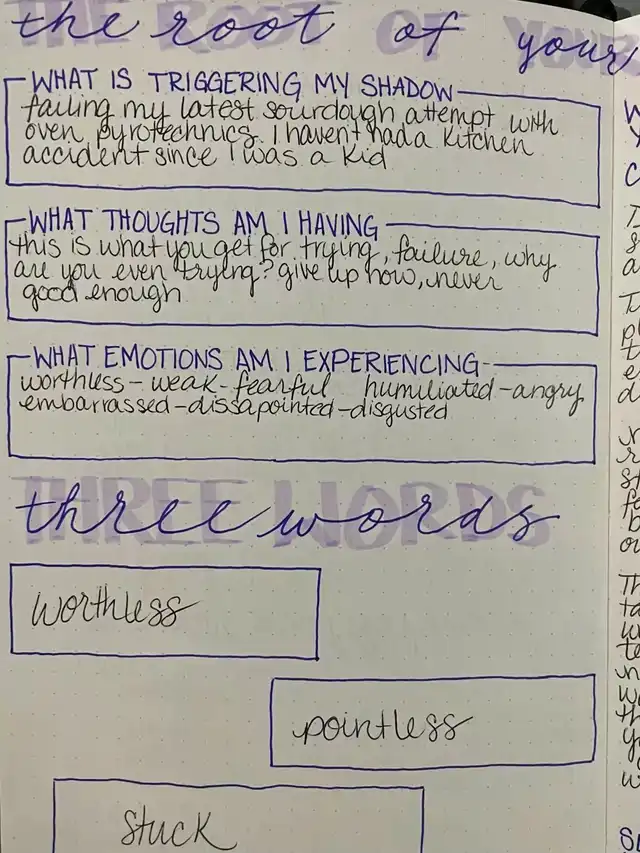 the root of your
WHAT IS TRIGGERING MY SHADOW
failing my latest sourdough attempt with
oven pyrotechnics. I haven't had a kitchen
accident since I was a kid
WHAT THOUGHTS AM I HAVING
this is what you get for trying, failure, why
are you even trying? give up now, never
good enough
WHAT EMOTIONS AM I EXPERIENCING
worthless-weak-fearful humiliated-angry
embarrassed-dissapointed-disgusted
three words
THREE WORDS
worthless
pointless
stuck